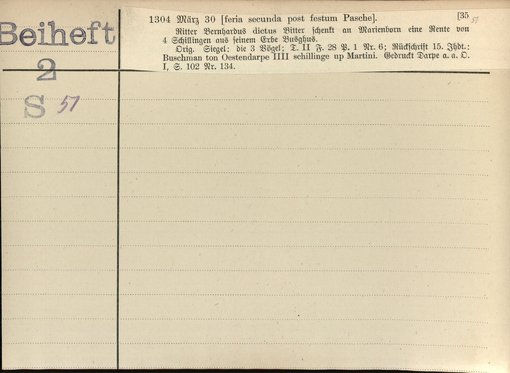 Beiheft
2
S 57
1304 März 30 [feria secunda post festum Pasche]. [35
Ritter Bernhardus dictus Bitter schenkt an Marienborn eine Rente von
4 Schillingen aus seinem Erbe Busghus.
Orig. Siegel: die 3 Vögel; T. II F. 28 P. 1 Nr. 6; Rückschrift 15. Jhdt.:
Buschman ton Oestendarpe IIII schillinge up Martini. Gedruckt Darpe a. a. O.
I, S. 102 Nr. 134.